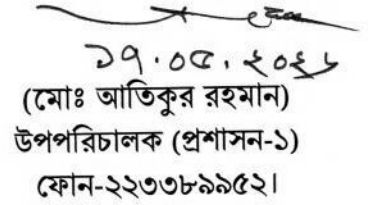 ১৭.০৫.২০২৬
(মোঃ আতিকুর রহমান)
উপপরিচালক (প্রশাসন-১)
ফোন-২২৩৩৮৯৯৫২।